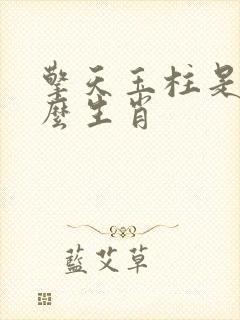 擎天玉柱是
麼生肖
藍艾草